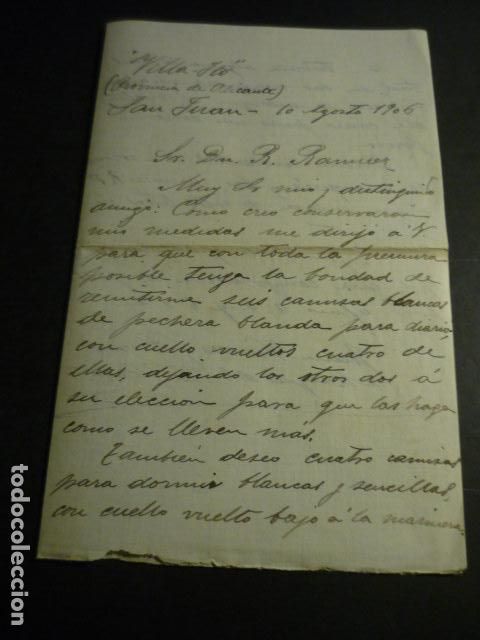 "Villa-Ito"
(Provincia de Alicante)
San Juan - 10 Agosto 1906
Sr. Dn. R. Ramirez
Muy Sr mio y distinguido
amigo: Como creo conservarán
mis medidas me dirijo á V
para que con toda la premura
posible tenga la bondad de
remitirme seis camisas blancas
de pechera blanda para diario,
con cuello vueltos cuatro de
ellas, dejando las otros dos á
su elección para que las haga
como se lleven más.
También deseo cuatro camisas
para dormir blancas y sencillas,
con cuello vuelto bajo á la marinera.
todocoleccion
todocoleccion.net